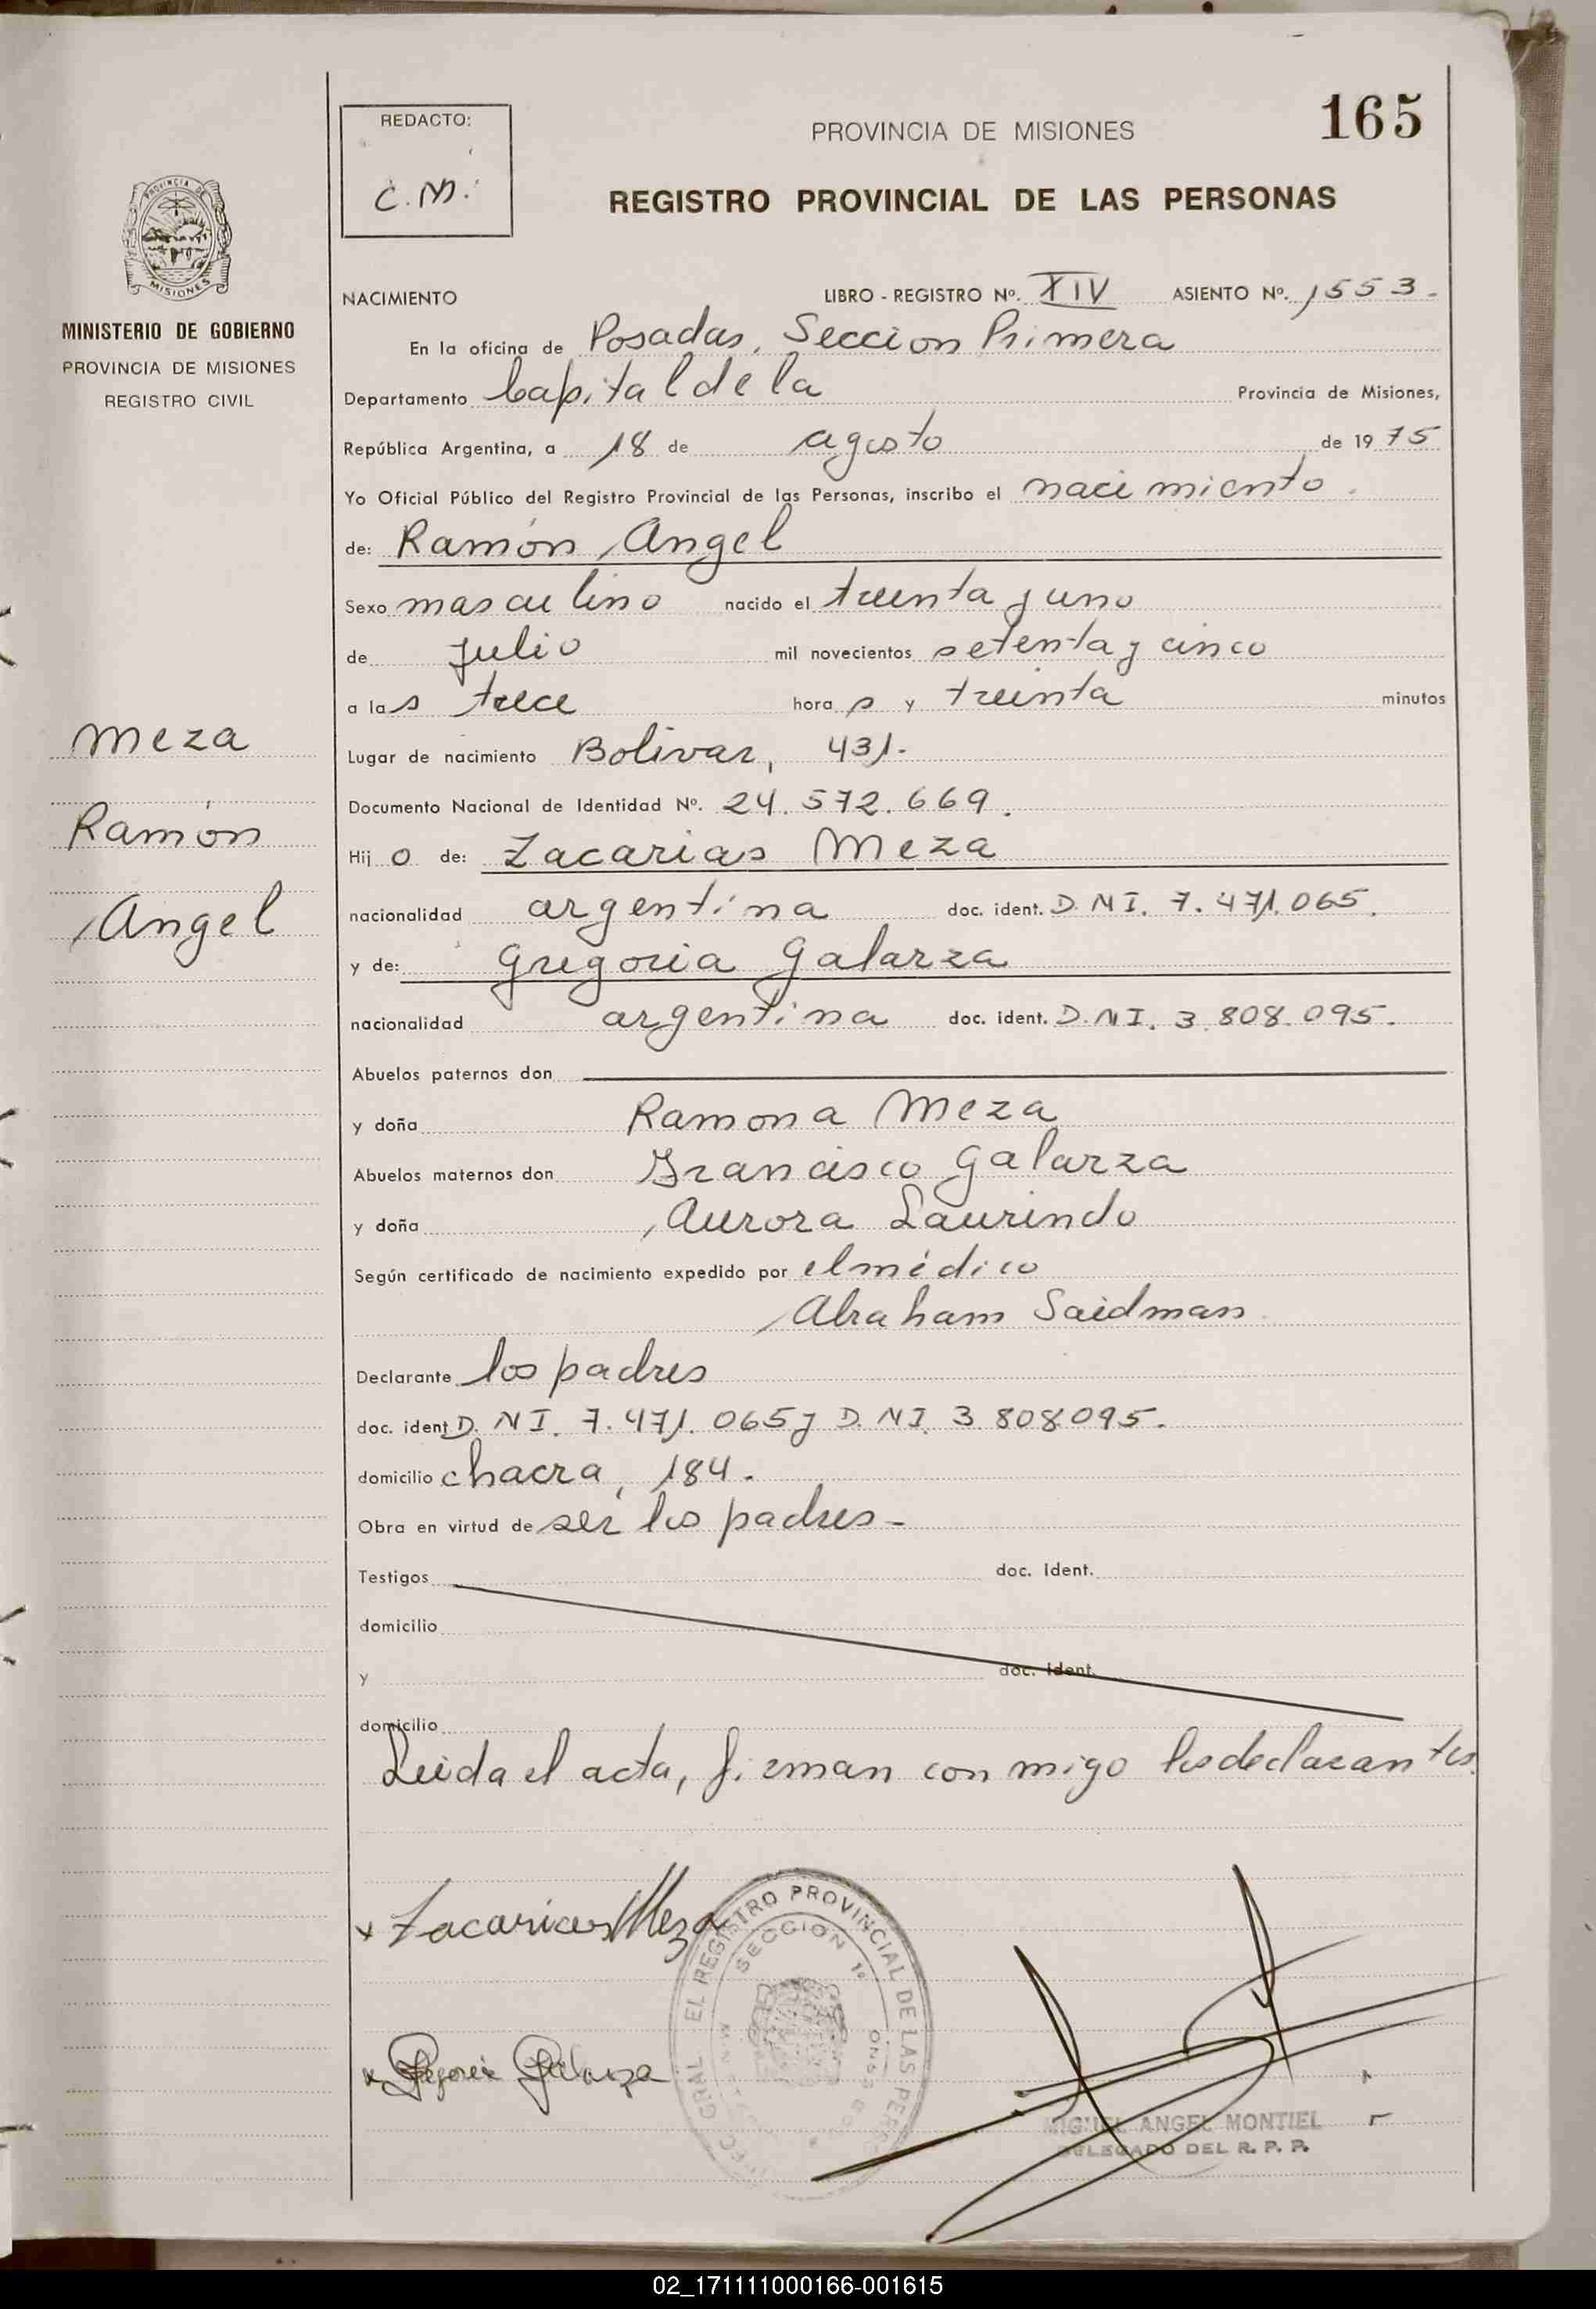 165
REDACTO:
C.M.
PROVINCIA DE MISIONES
REGISTRO PROVINCIAL DE LAS PERSONAS
PROVINCIA DE
MISIONES
MINISTERIO DE GOBIERNO
PROVINCIA DE MISIONES
REGISTRO CIVIL
Meza
Ramón
Angel
NACIMIENTO LIBRO - REGISTRO Nº. XIV ASIENTO Nº. 1553.
En la oficina de Posadas, Seccion Primera
Departamento Capital de la Provincia de Misiones,
República Argentina, a 18 de agosto de 1975
Yo Oficial Público del Registro Provincial de las Personas, inscribo el nacimiento.
de: Ramón Angel
Sexo masculino nacido el treinta y uno
de julio mil novecientos setenta y cinco
a las trece horas y treinta minutos
Lugar de nacimiento Bolivar, 431.
Documento Nacional de Identidad Nº. 24.572.669.
Hijo de: Zacarias Meza
nacionalidad argentina doc. ident. D.N.I. 7.471.065.
y de: Gregoria Galarza
nacionalidad argentina doc. ident. D.N.I. 3.808.095.
Abuelos paternos don
y doña Ramona Meza
Abuelos maternos don Francisco Galarza
y doña Aurora Laurindo
Según certificado de nacimiento expedido por el médico
Abraham Saidman
Declarante los padres
doc. ident D.N.I. 7.471.065 y D.N.I. 3.808095.
domicilio chacra, 184.
Obra en virtud de ser los padres-
Testigos doc. Ident.
domicilio
y doc. Ident.
domicilio
Leida el acta, firman con migo los declarantes.
x Zacarias Meza
EL REGISTRO PROVINCIAL DE LAS PERS
SECCION 1º
GRAL.
x Gregoria Galarza
MIGUEL ANGEL MONTIEL
DELEGADO DEL R. P. P.
02_171111000166-001615